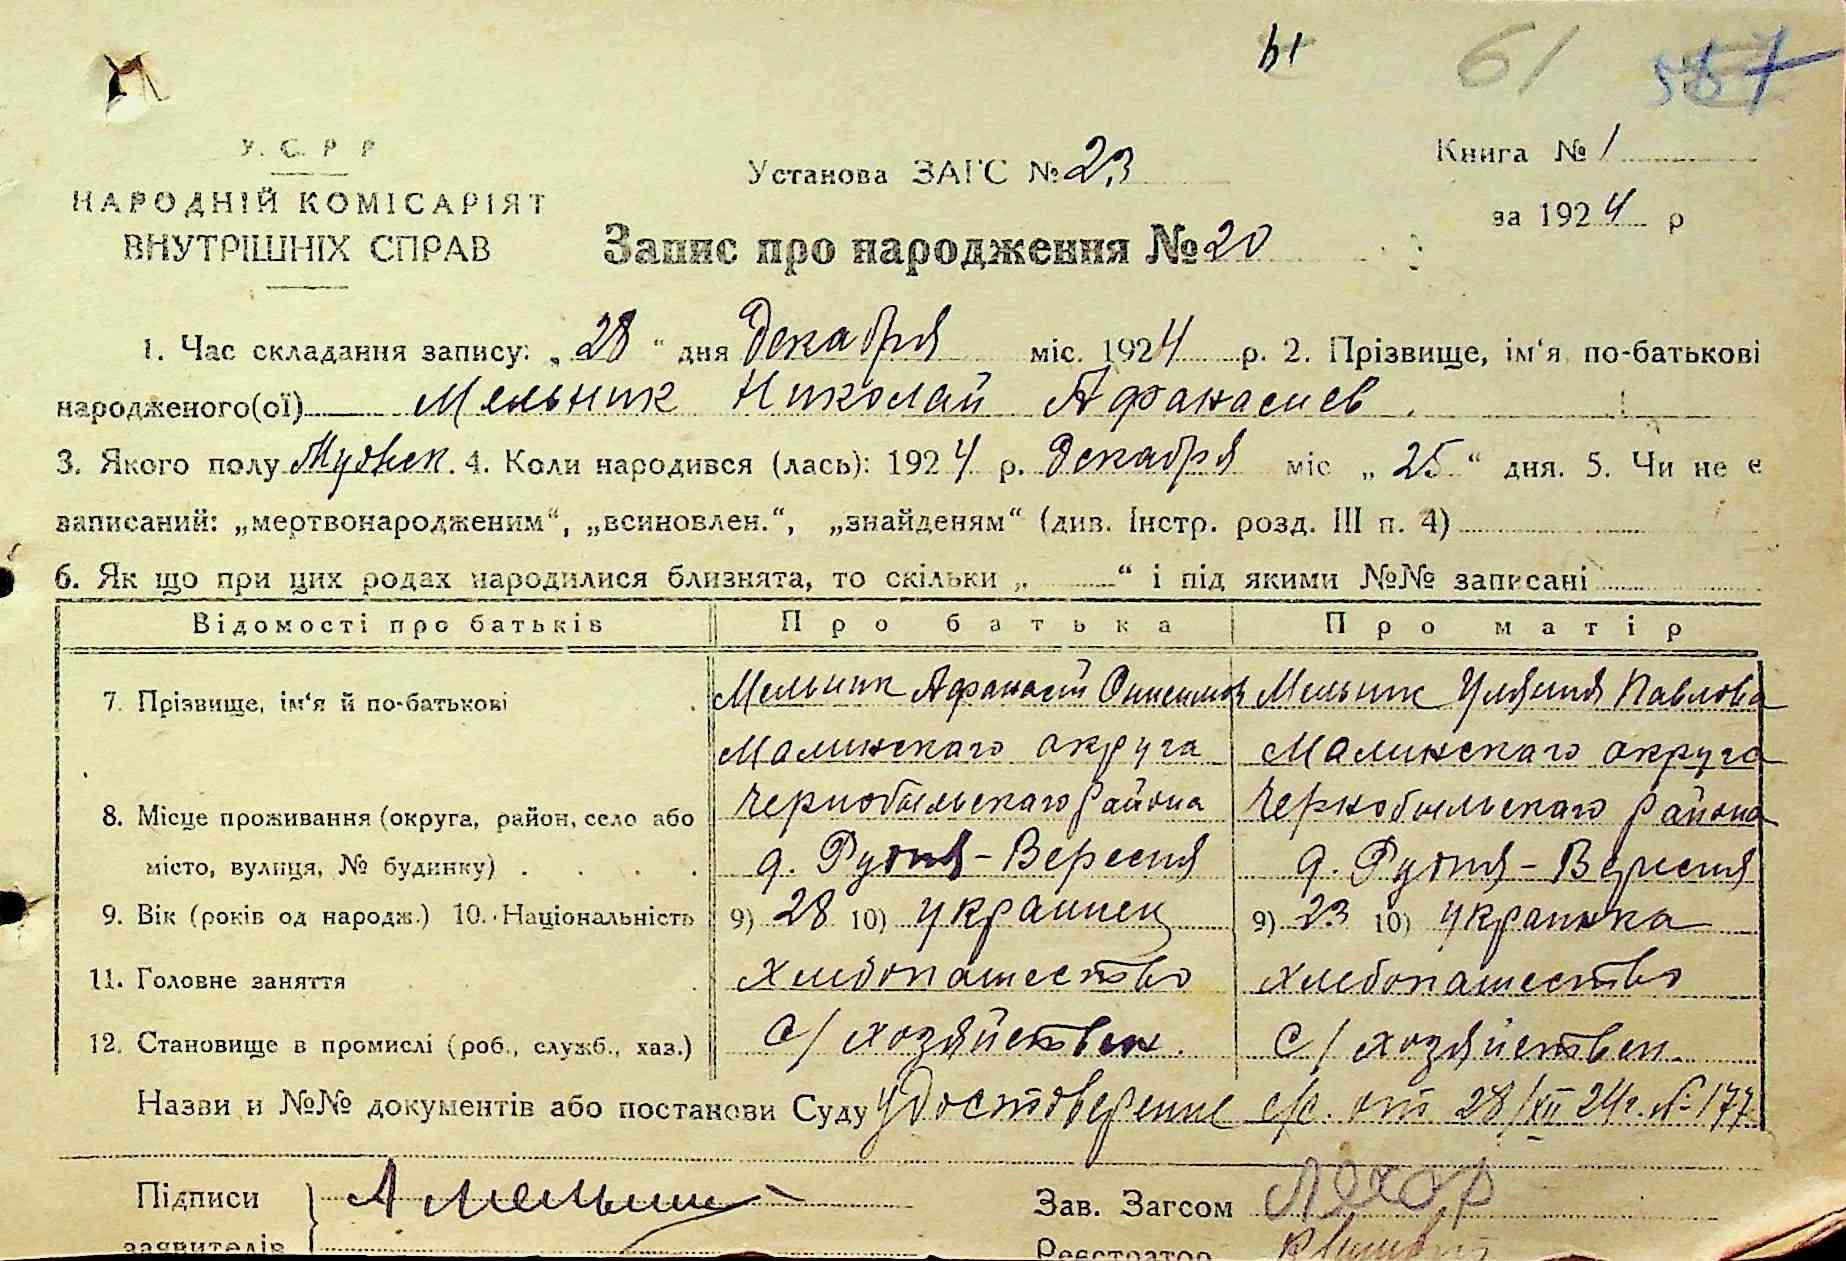 61
У. С. Р Р
НАРОДНІЙ КОМІСАРІЯТ
ВНУТРІШНІХ СПРАВ
Установа ЗАГС № 23
Книга № 1
за 1924 р
Запис про народження № 20
1. Час складання запису: „28“ дня Декабря міс. 1924 р. 2. Прізвище, ім‘я по-батькові
народженого(ої) Мельник Николай Афанасиев
3. Якого полу Мужск. 4. Коли народився (лась): 1924 р. Декабря міс „25“ дня. 5. Чи не є
записаний: „мертвонародженим“, „всиновлен.“, „знайденям“ (див. Інстр. розд. III п. 4)
6. Як що при цих родах народилися близнята, то скільки „ “ і під якими №№ записані
Відомості про батьків Про батька Про матір
7. Прізвище, ім‘я й по-батькові Мельник Афанасий Онисимов Мельник Ульяния Павлова
Малинскаго округа Малинскаго округа
8. Місце проживання (округа, район, село або Чернобыльскаго района Чернобыльскаго района
місто, вулиця, № будинку) . . . . д. Рудня-Вересня д. Рудня-Вересня
9. Вік (років од народж.) 10. Національність 9) 28 10) украинец 9) 23 10) украинка
11. Головне заняття хлебопашество хлебопашество
12. Становище в промислі (роб., служб., хаз.) с/хозяйствен. с/хозяйствен.
Назви и №№ документів або постанови Суду удостоверение с/с. от 28/XII 24 г. № 177
Підписи А Мельник Зав. Загсом
заявителів Реєстратор